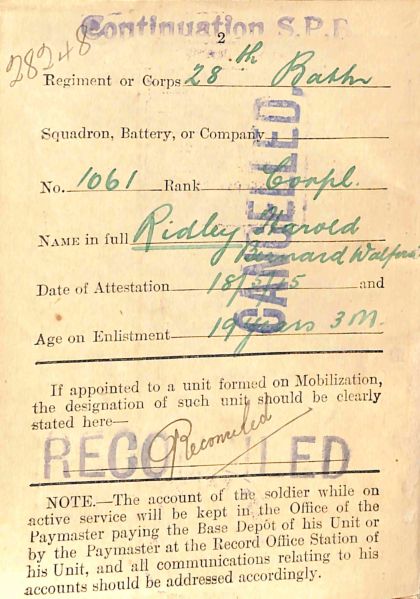 Continuation S.P.B.
2
28248
Regiment or Corps 28th Battn
Squadron, Battery, or Company
No. 1061 Rank Corpl.
NAME in full Ridley Harold
Bernard Walford
Date of Attestation 18/5/15 and
Age on Enlistment 19 years 3 M.
CANCELLED
If appointed to a unit formed on Mobilization,
the designation of such unit should be clearly
stated here—
Reconciled
RECONCILED
NOTE.—The account of the soldier while on
active service will be kept in the Office of the
Paymaster paying the Base Depôt of his Unit or
by the Paymaster at the Record Office Station of
his Unit, and all communications relating to his
accounts should be addressed accordingly.